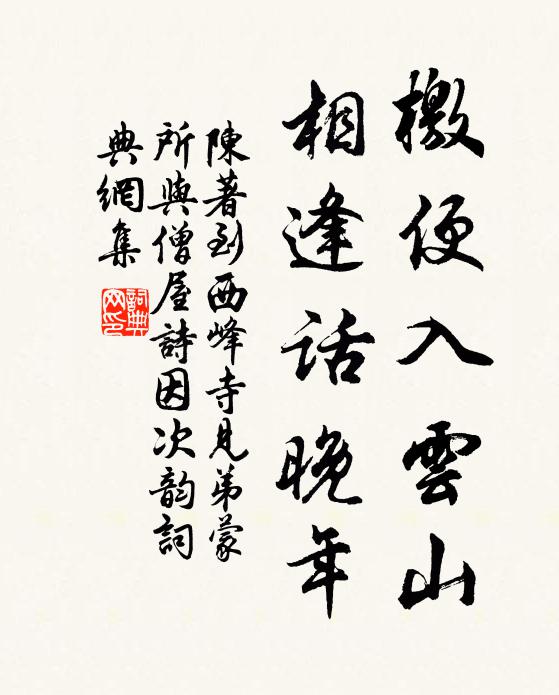 檄便入雲山
相逢話晚年
陳著到西峰寺見弟蒙
所與僧屋詩因次韵詞
典網集
詞典
网印